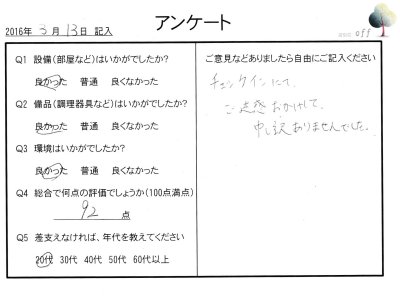 アンケート
2016年 3月 13日 記入
off
Q1 設備(部屋など)はいかがでしたか?
良かった 普通 良くなかった
Q2 備品(調理器具など)はいかがでしたか?
良かった 普通 良くなかった
Q3 環境はいかがでしたか?
良かった 普通 良くなかった
Q4 総合で何点の評価でしょうか(100点満点)
92 点
Q5 差支えなければ、年代を教えてください
20代 30代 40代 50代 60代以上
ご意見などありましたら自由にご記入ください
チェックインにて、
ご迷惑おかけして、
申し訳ありませんでした。